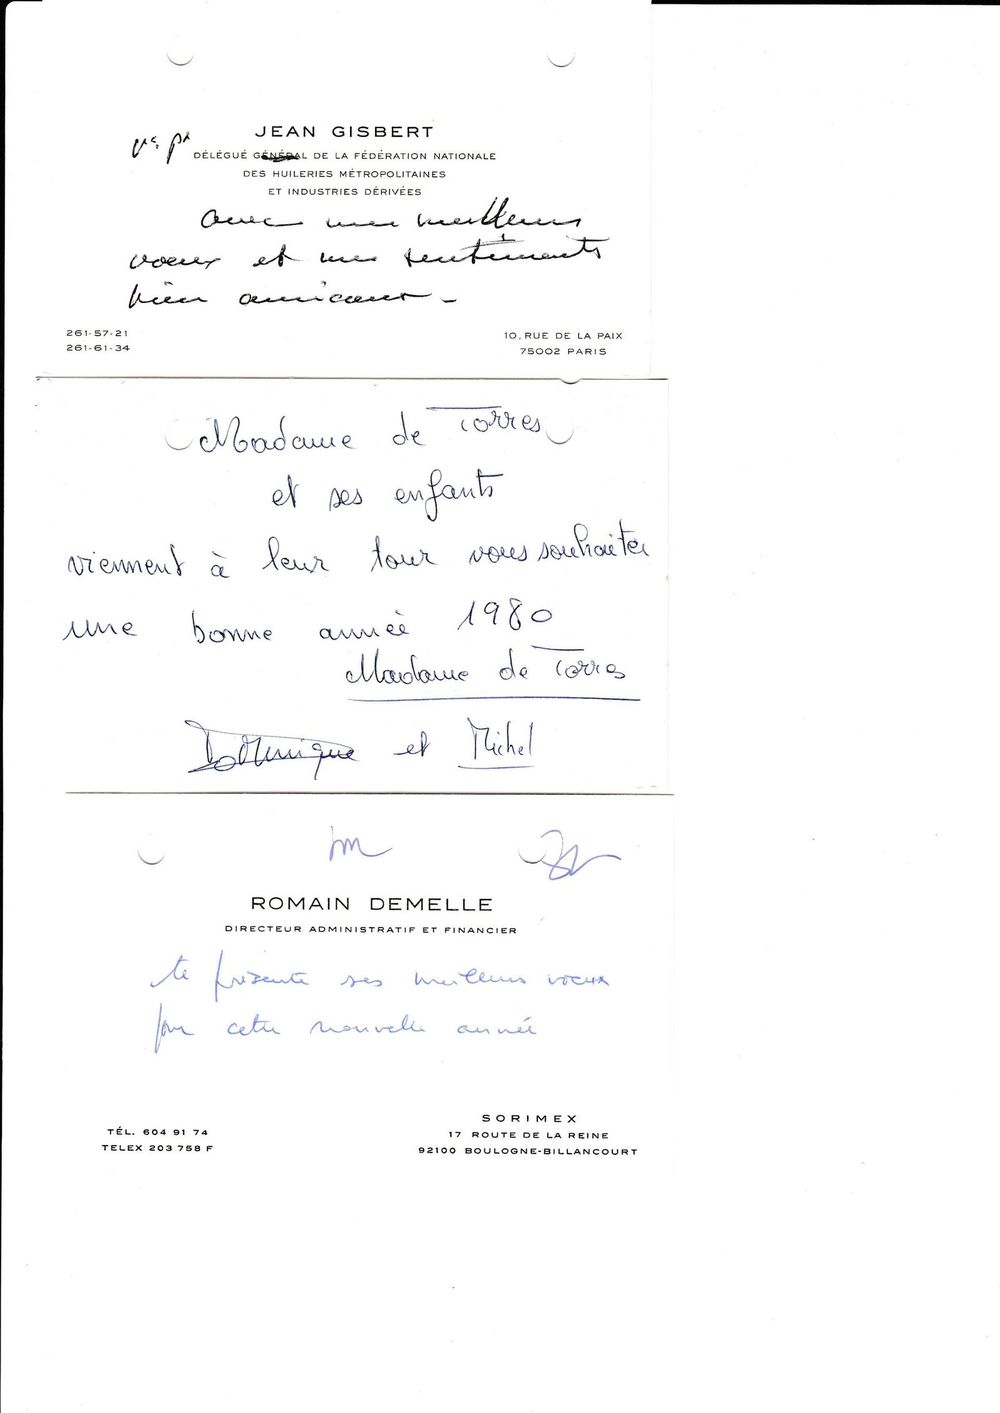 JEAN GISBERT
DÉLÉGUÉ GÉNÉRAL DE LA FÉDÉRATION NATIONALE
DES HUILERIES MÉTROPOLITAINES
ET INDUSTRIES DÉRIVÉES
avec mes meilleurs
voeux et mes sentiments
bien amicaux -
261-57-21
261-61-34
10, RUE DE LA PAIX
75002 PARIS
Madame de Torres
et ses enfants
viennent à leur tour vous souhaiter
une bonne année 1980
Madame de Torres
Dominique et Michel
ROMAIN DEMELLE
DIRECTEUR ADMINISTRATIF ET FINANCIER
te présente ses meilleurs voeux
pour cette nouvelle année
TÉL. 604 91 74
TELEX 203 758 F
SORIMEX
17 ROUTE DE LA REINE
92100 BOULOGNE-BILLANCOURT